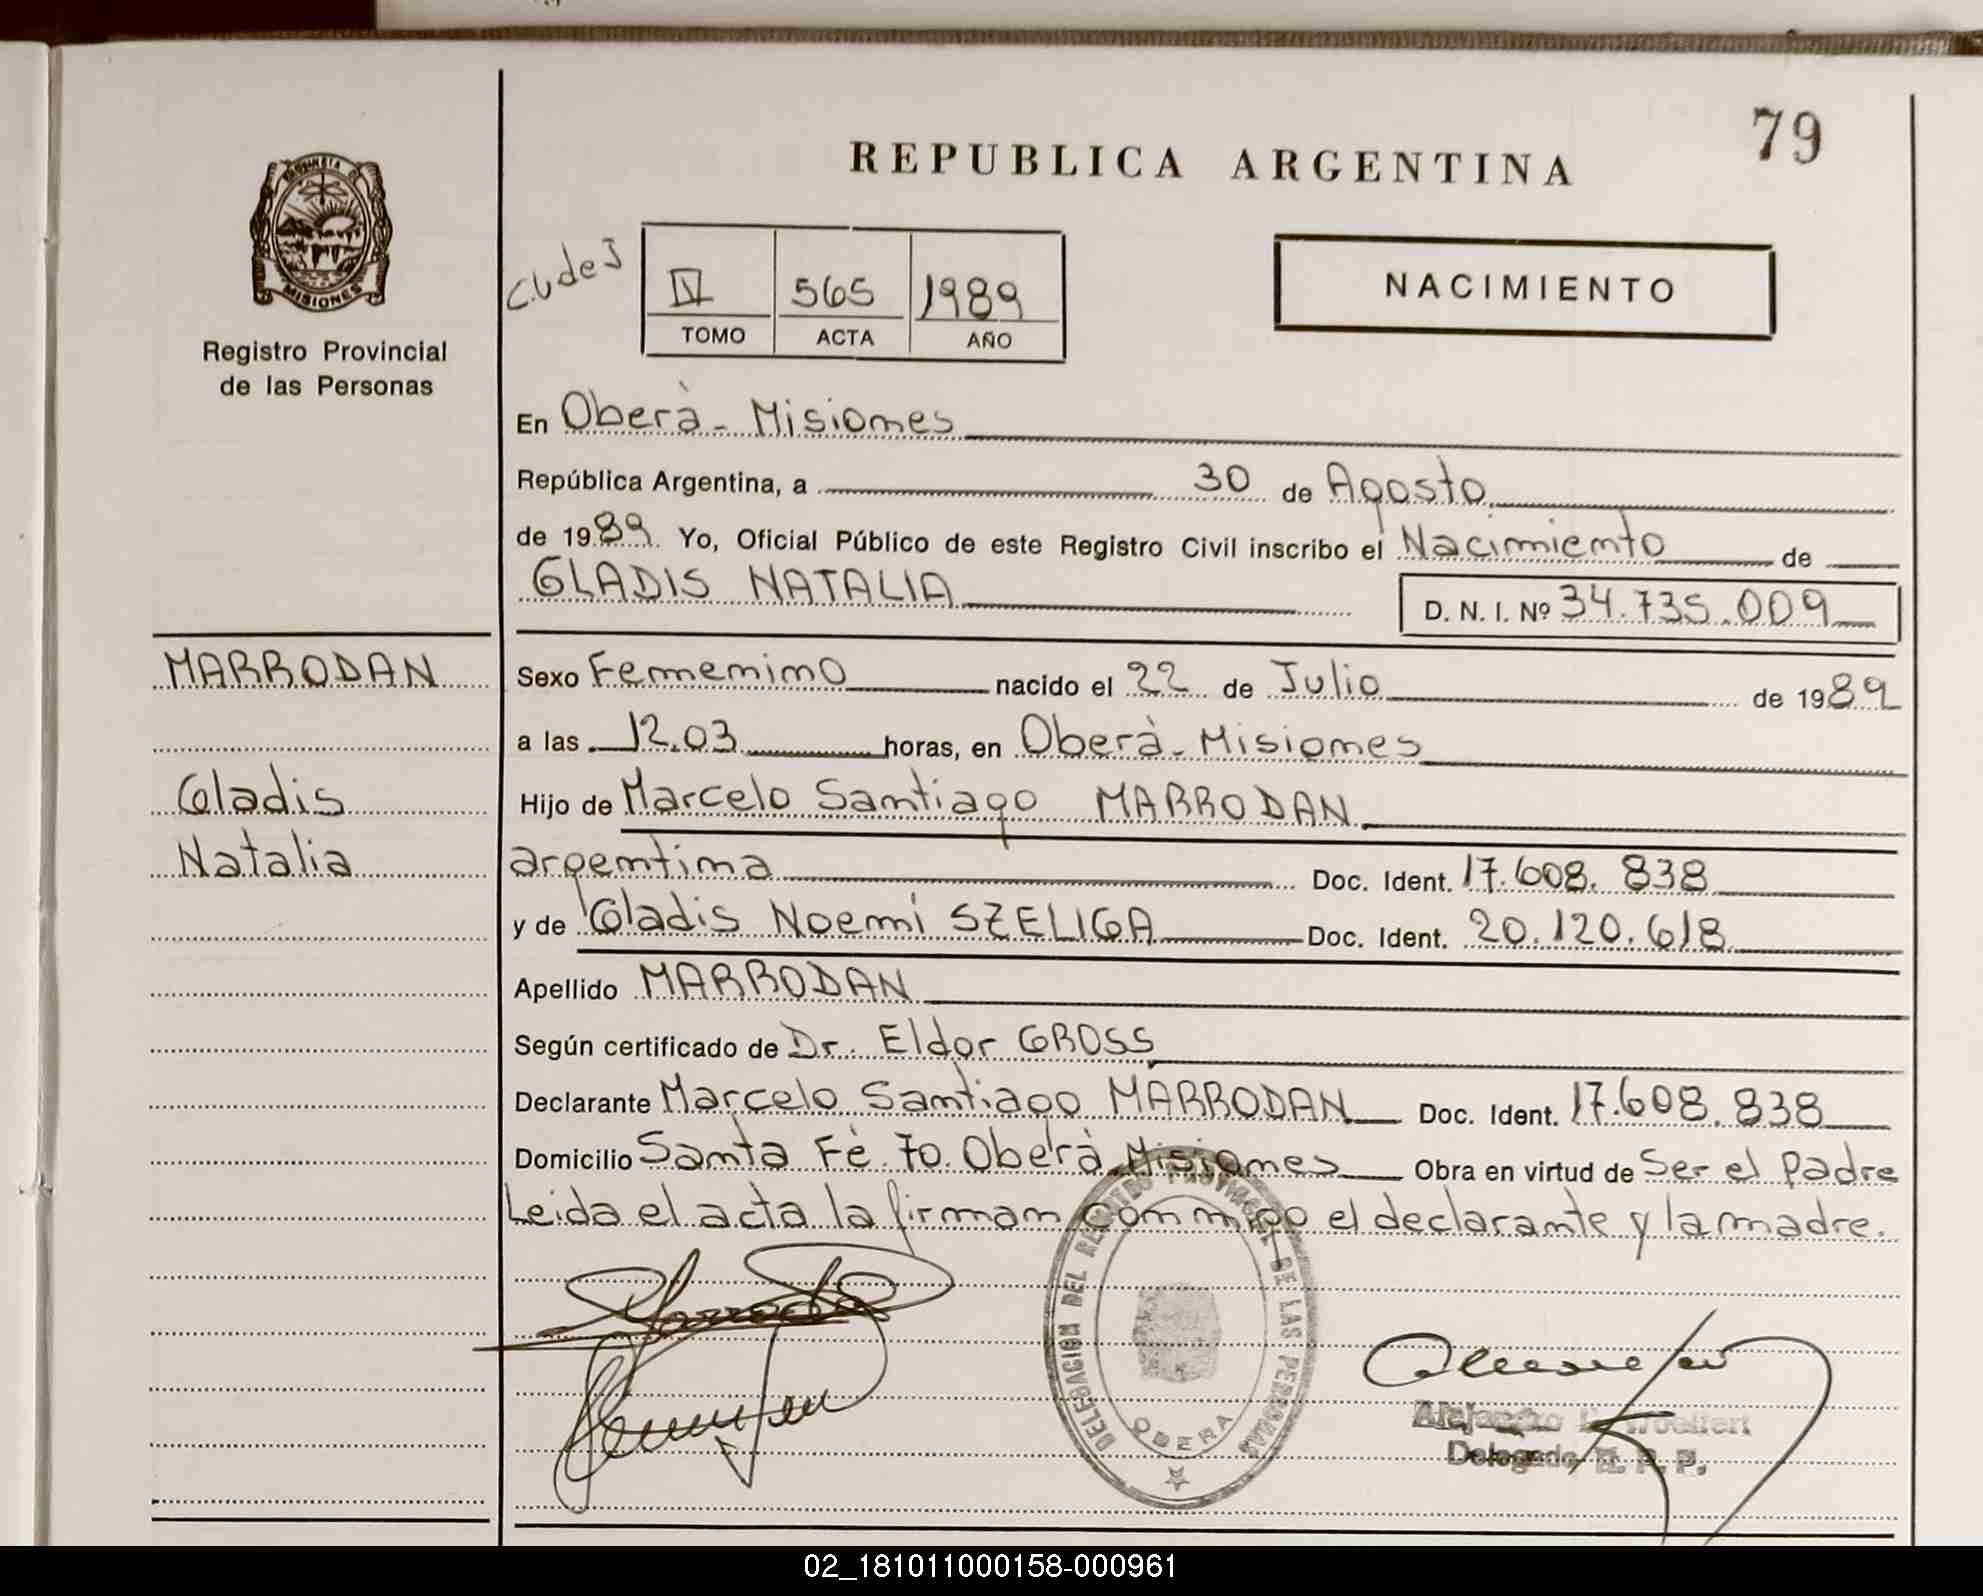 79
REPUBLICA ARGENTINA
MISIONES
Registro Provincial
de las Personas
IV 565 1989
TOMO ACTA AÑO
NACIMIENTO
En Oberà - Misiones
República Argentina, a 30 de Agosto
de 1989. Yo, Oficial Público de este Registro Civil inscribo el Nacimiento de
GLADIS NATALIA D. N. I. Nº 34.735.009
MARRODAN
Gladis
Natalia
Sexo Femenino nacido el 22 de Julio de 1989
a las 12.03 horas, en Oberà - Misiones
Hijo de Marcelo Santiago MARRODAN
argentina Doc. Ident. 17.608.838
y de Gladis Noemi SZELIGA Doc. Ident. 20.120.618
Apellido MARRODAN
Según certificado de Dr. Eldor GROSS
Declarante Marcelo Santiago MARRODAN Doc. Ident. 17.608.838
Domicilio Santa Fè 70. Oberà Misiones Obra en virtud de Ser el padre
Leida el acta la firman conmigo el declarante y la madre.
DELEGACION DEL REGISTRO PROVINCIAL DE LAS PERSONAS
OBERA
Alejandro
Delegado R. P. P.
02_181011000158-000961